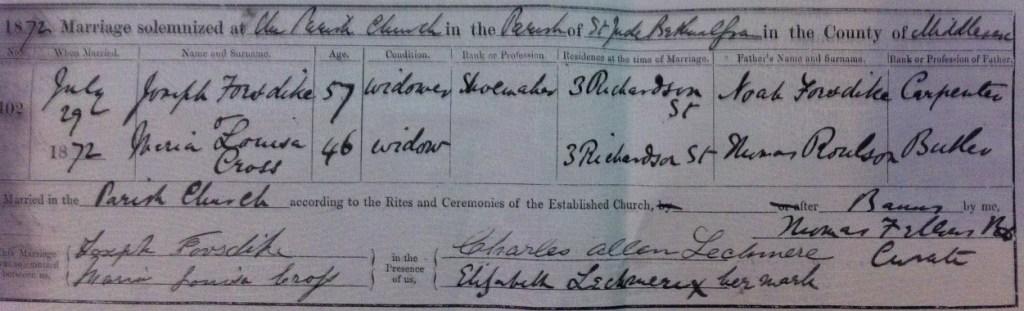 1872 Marriage solemnized at the Parish Church in the Parish of St Jude Bethnal Green in the County of Middlesex
No. When Married. Name and Surname. Age. Condition. Rank or Profession. Residence at the time of Marriage. Father's Name and Surname. Rank or Profession of Father.
102 July 29 1872 Joseph Fowsdike 57 widower Shoemaker 3 Richardson St Noah Fowsdike Carpenter
Maria Louisa Cross 46 widow 3 Richardson St Thomas Roulson Butler
Married in the Parish Church according to the Rites and Ceremonies of the Established Church, by or after Banns by me,
Thomas
Curate
This Marriage was solemnized between us, Joseph Foosdike in the Presence of us, Charles Allen Lechmere
Maria Louisa Cross Elizabeth Lechmere X her mark